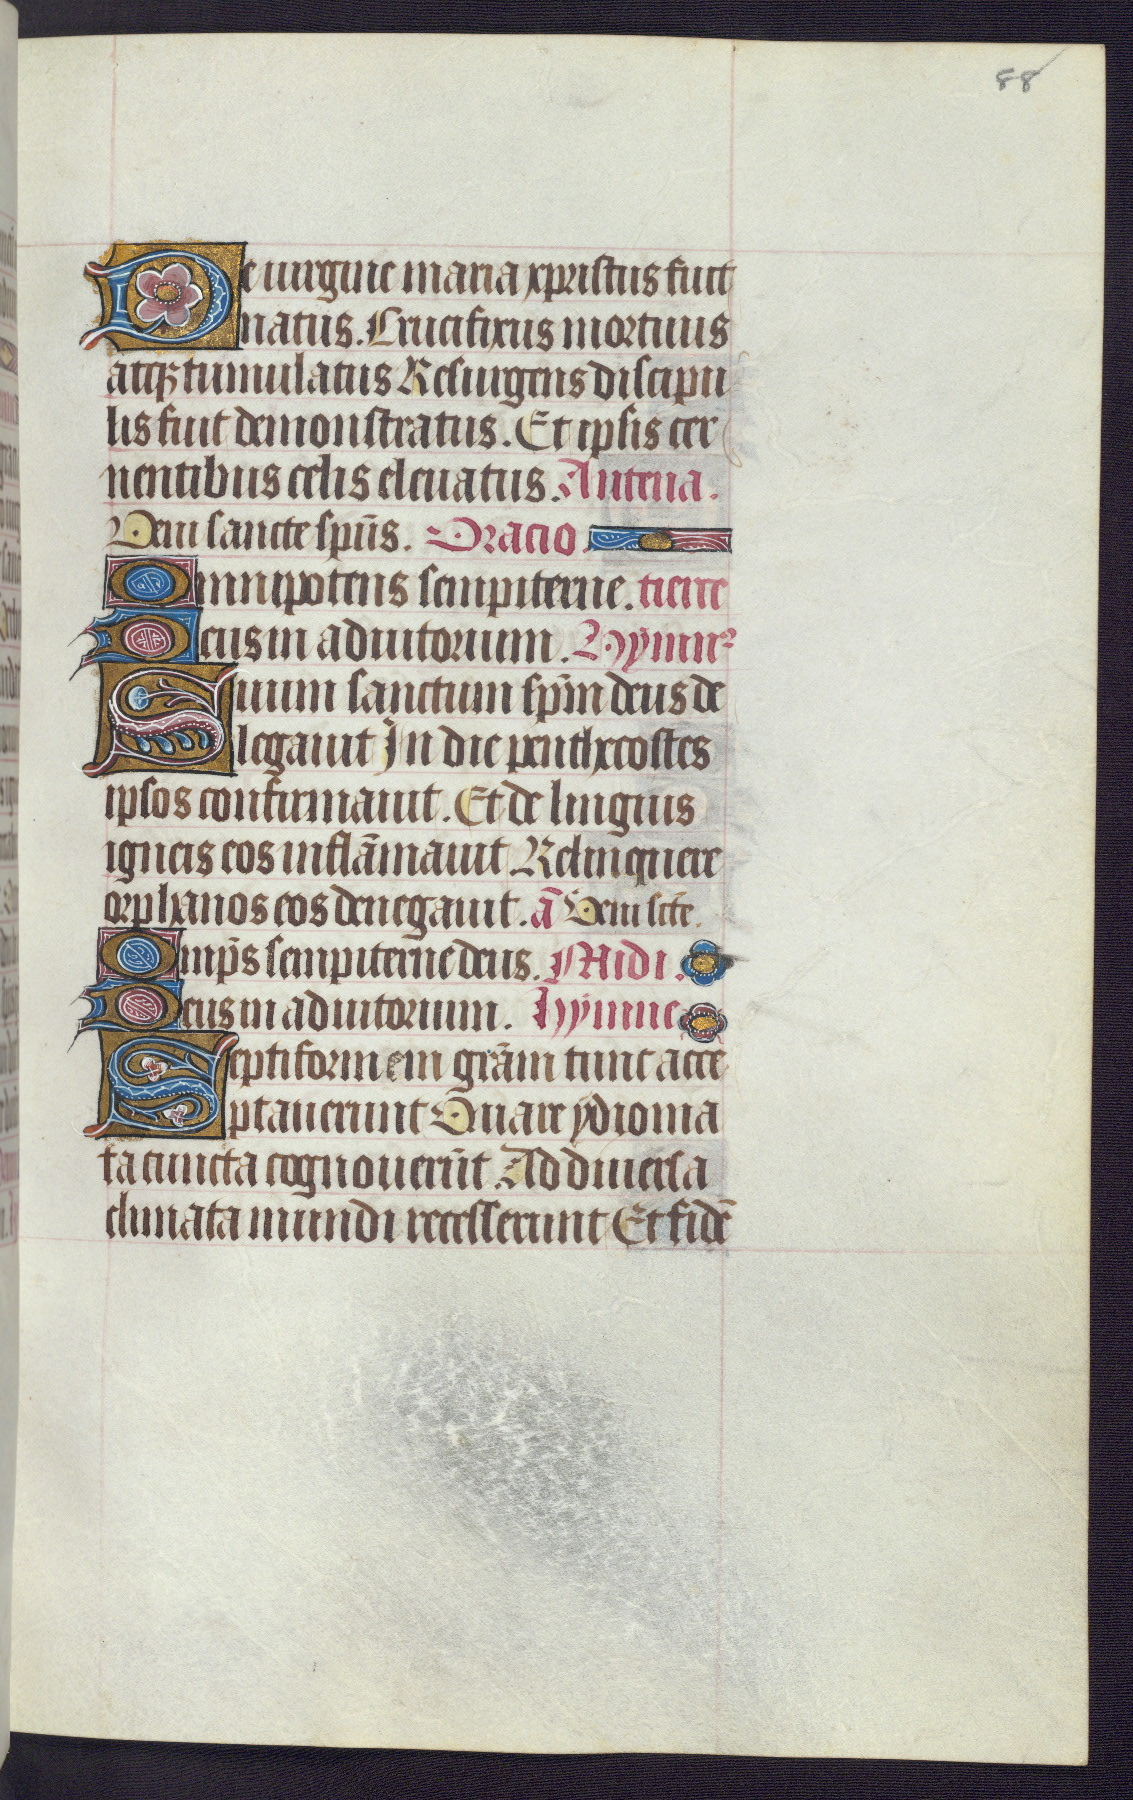 88
De uirgine maria xpristus fuit
natus. Crucifixus mortuus
atqꝫ tumulatus Resurgens discipu
lis fuit demonstratus. Et ipsis cer
nentibus celis eleuatus. Antena.
Veni sancte spūs. Oracio
Omnipotens sempiterne. tierce
Deus in adiutorium. Hymnꝰ
Suum sanctum spm̄ deus de
legauit In die penthecostes
ipsos confirmauit. Et de linguis
igneis eos inflāmauit Relinquere
orphanos eos denegauit. ā Veni sctē.
Omp̄s sempiterne deus. Midi.
Deus in adiutorium. hymne
Septiformem grām tunc acce
ptauerunt Quare ydioma
ta cuncta cognouerūt. Ad diuersa
climata mundi recesserunt Et fidē